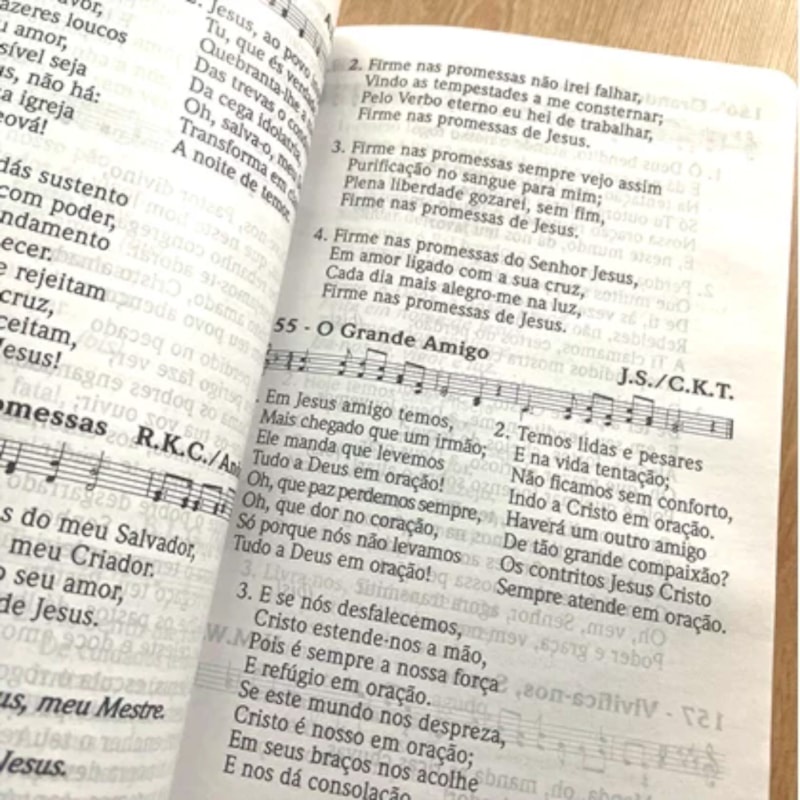 azeres loucos
u amor,
sível seja
s, não há:
a igreja
eová!
dás sustento
com poder,
ndamento
ecer.
e rejeitam
cruz,
ceitam,
Jesus!
omessas R.K.C./
s do meu Salvador,
meu Criador.
o seu amor,
de Jesus.
us, meu Mestre.
Jesus.
Jesus, ao povo
Tu, que és
Quebranta-lhe
Das trevas o
Da cega
Oh, salva-o,
Transforma em
A noite de
2. Firme nas promessas não irei falhar,
Vindo as tempestades a me consternar;
Pelo Verbo eterno eu hei de trabalhar,
Firme nas promessas de Jesus.
3. Firme nas promessas sempre vejo assim
Purificação no sangue para mim;
Plena liberdade gozarei, sem fim,
Firme nas promessas de Jesus.
4. Firme nas promessas do Senhor Jesus,
Em amor ligado com a sua cruz,
Cada dia mais alegro-me na luz,
Firme nas promessas de Jesus.
55 - O Grande Amigo
J.S./C.K.T.
. Em Jesus amigo temos,
Mais chegado que um irmão;
Ele manda que levemos
Tudo a Deus em oração!
Oh, que paz perdemos sempre,
Oh, que dor no coração,
Só porque nós não levamos
Tudo a Deus em oração!
2. Temos lidas e pesares
E na vida tentação;
Não ficamos sem conforto,
Indo a Cristo em oração.
Haverá um outro amigo
De tão grande compaixão?
Os contritos Jesus Cristo
Sempre atende em oração.
3. E se nós desfalecemos,
Cristo estende-nos a mão,
Pois é sempre a nossa força
E refúgio em oração.
Se este mundo nos despreza,
Cristo é nosso em oração;
Em seus braços nos acolhe
E nos dá consolação